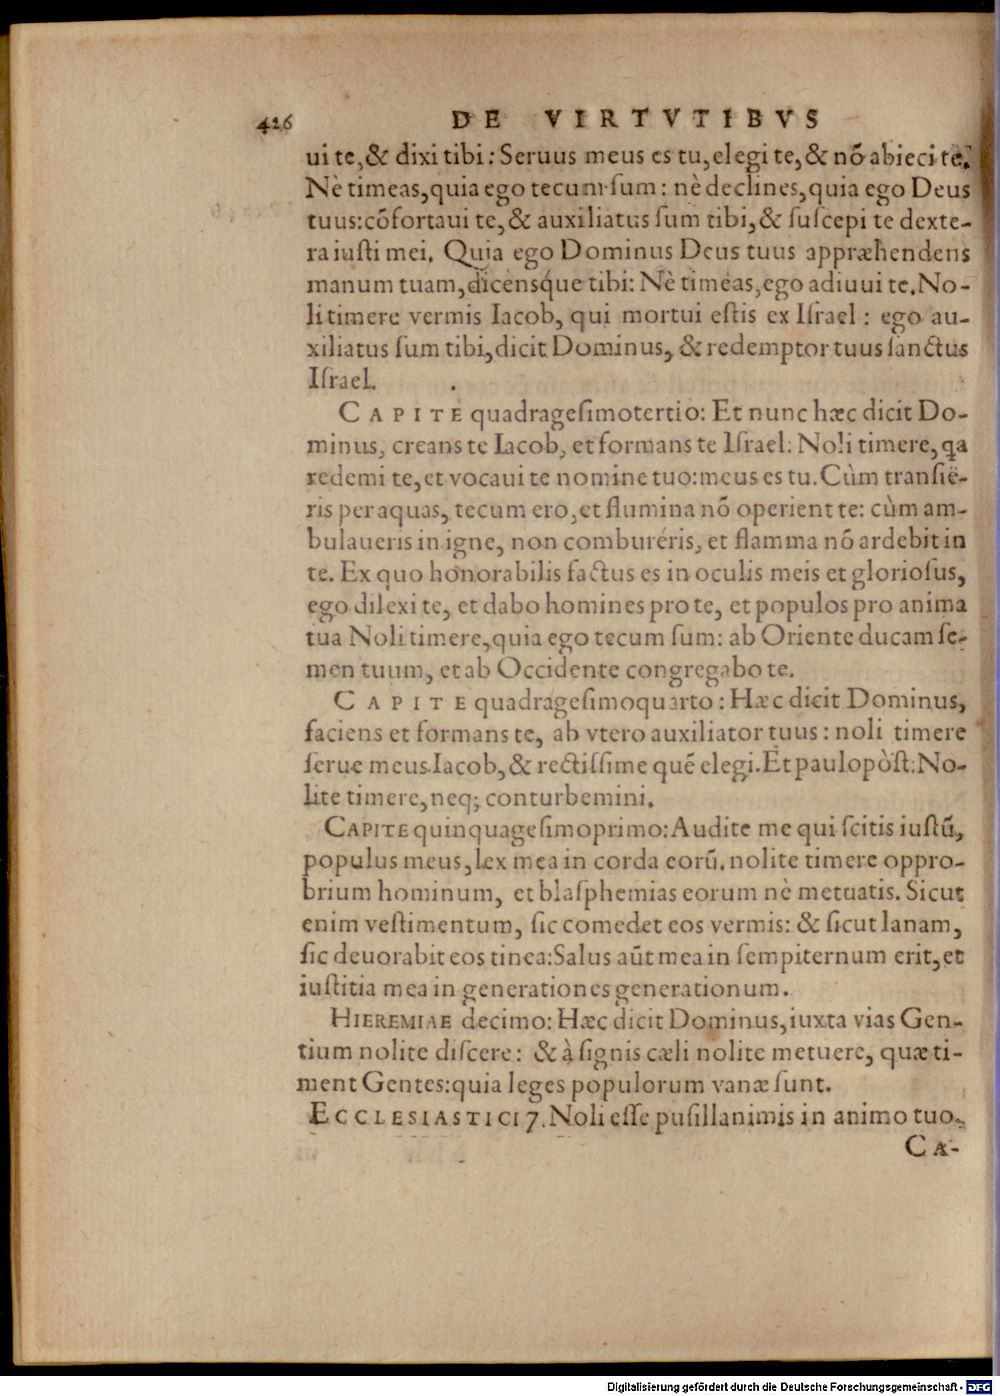 426 DE VIRTVTIBVS
ui te,& dixi tibi: Seruus meus es tu, elegi te, & nõ abieci te.
Nè timeas, quia ego tecum sum: nè declines, quia ego Deus
tuus: cõfortaui te, & auxiliatus sum tibi, & suscepi te dexte-
ra iusti mei. Quia ego Dominus Deus tuus appræhendens
manum tuam, dicensq́ue tibi: Nè timeas, ego adiuui te. No-
li timere vermis Iacob, qui mortui estis ex Israel: ego au-
xiliatus sum tibi, dicit Dominus, & redemptor tuus sanctus
Israel.
CAPITE quadragesimotertio: Et nunc hæc dicit Do-
minus, creans te Iacob, et formans te Israel: Noli timere, qa
redemi te, et vocaui te nomine tuo: meus es tu. Cùm transië-
ris per aquas, tecum ero, et flumina nõ operient te: cùm am-
bulaueris in igne, non comburéris, et flamma nõ ardebit in
te. Ex quo honorabilis factus es in oculis meis et gloriosus,
ego dilexi te, et dabo homines pro te, et populos pro anima
tua Noli timere, quia ego tecum sum: ab Oriente ducam se-
men tuum, et ab Occidente congregabo te.
CAPITE quadragesimoquarto: Hæc dicit Dominus,
faciens et formans te, ab vtero auxiliator tuus: noli timere
serue meus Iacob, & rectissime quẽ elegi. Et paulopòst: No-
lite timere, neq; conturbemini.
CAPITE quinquagesimoprimo: Audite me qui scitis iustũ,
populus meus, lex mea in corda eorũ. nolite timere oppro-
brium hominum, et blasphemias eorum nè metuatis. Sicut
enim vestimentum, sic comedet eos vermis: & sicut lanam,
sic deuorabit eos tinea: Salus aũt mea in sempiternum erit, et
iustitia mea in generationes generationum.
HIEREMIAE decimo: Hæc dicit Dominus, iuxta vias Gen-
tium nolite discere: & à signis cæli nolite metuere, quæ ti-
ment Gentes: quia leges populorum vanæ sunt.
ECCLESIASTICI 7. Noli esse pusillanimis in animo tuo.
CA-
Digitalisierung gefördert durch die Deutsche Forschungsgemeinschaft - DFG